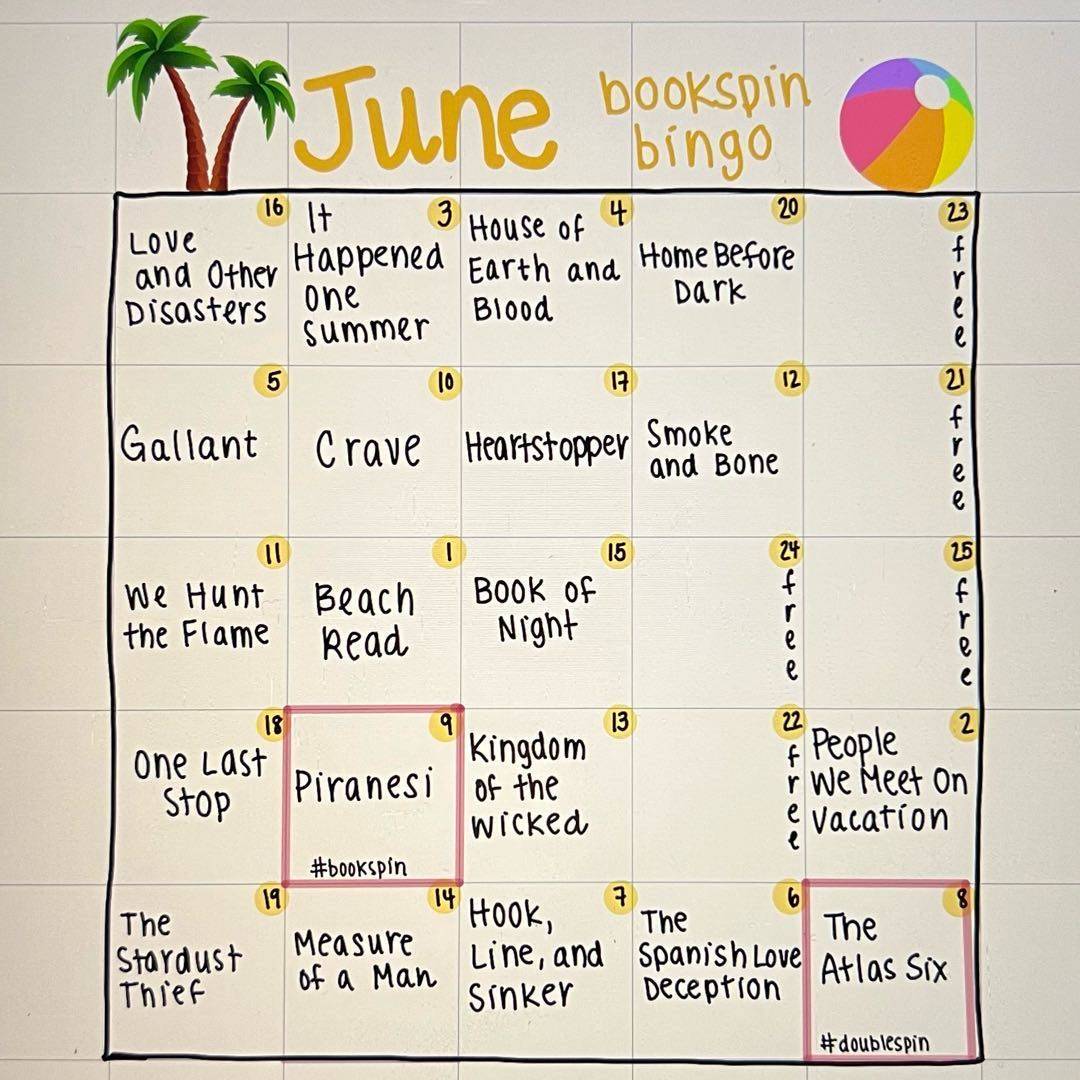 June bookspin
bingo
16
Love
and Other
Disasters
3
It
Happened
One
Summer
4
House of
Earth and
Blood
20
Home Before
Dark
23
free
5
Gallant
10
Crave
17
Heartstopper
12
Smoke
and Bone
21
free
11
We Hunt
the Flame
1
Beach
Read
15
Book of
Night
24
free
25
free
18
One Last
Stop
9
Piranesi
#bookspin
13
Kingdom
of the
Wicked
22
free
2
People
We Meet On
Vacation
19
The
Stardust
Thief
14
Measure
of a Man
7
Hook,
Line, and
Sinker
6
The
Spanish Love
Deception
8
The
Atlas Six
#doublespin